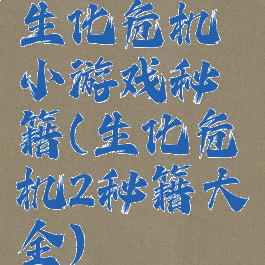 生化危机
小游戏秘
籍(生化危
机2秘籍大
全)